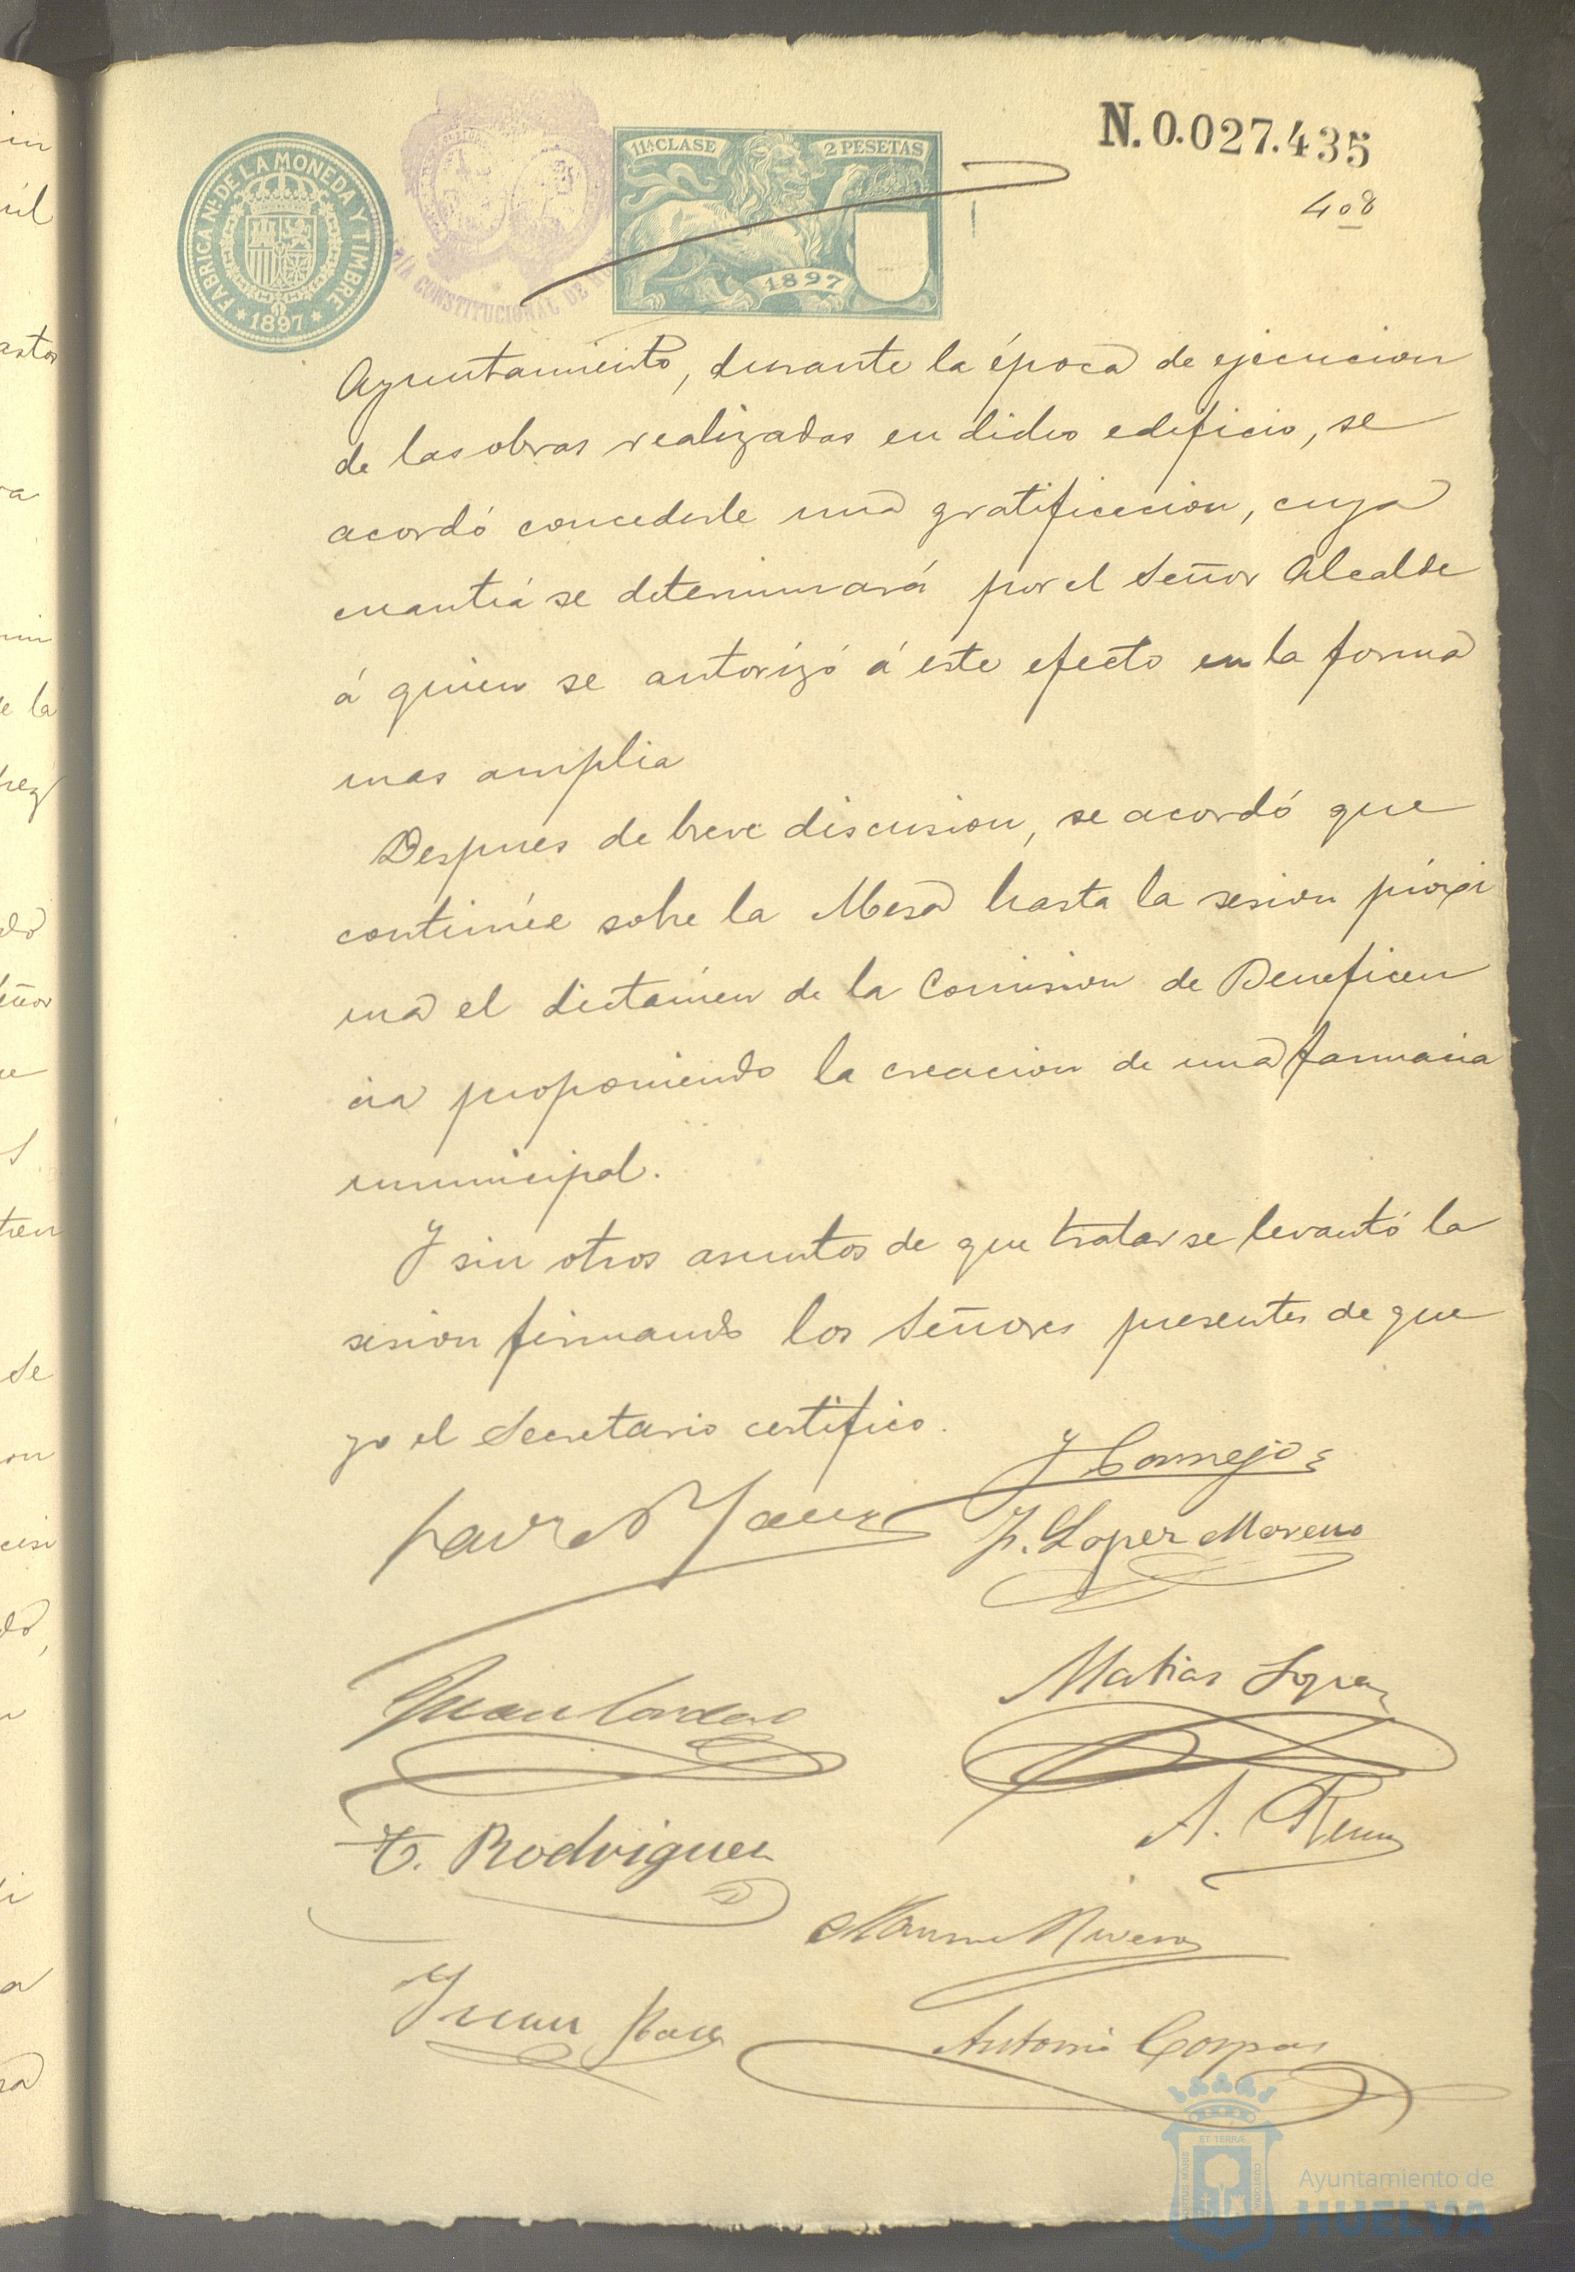 N. 0.027.435
408
FABRICA NL. DE LA MONEDA Y TIMBRE
* 1897 *
CONSTITUCIONAL DE
11ª CLASE
2 PESETAS
1897
Ayuntamiento, durante la época de ejecucion
de las obras realizadas en dicho edificio, se
acordó concederle una gratificacion, cuya
cuantiá se determinará por el Señor Alcalde
á quien se autorizó á este efecto en la forma
mas amplia
Despues de breve discusion, se acordó que
continúe sobre la Mesa hasta la sesion próxi
ma el dictámen de la Comision de Beneficen
cia proponiendo la creacion de una farmacia
municipal.
Y sin otros asuntos de que tratar se levantó la
sesion firmando los Señores presentes de que
yo el Secretario certifico.
J Cornejo
J. Lopez Moreno
Juan Cordero
Matias Lopez
T. Rodriguez
A.
Rivero
Juan
Antonio Corpas
Ayuntamiento de
HUELVA